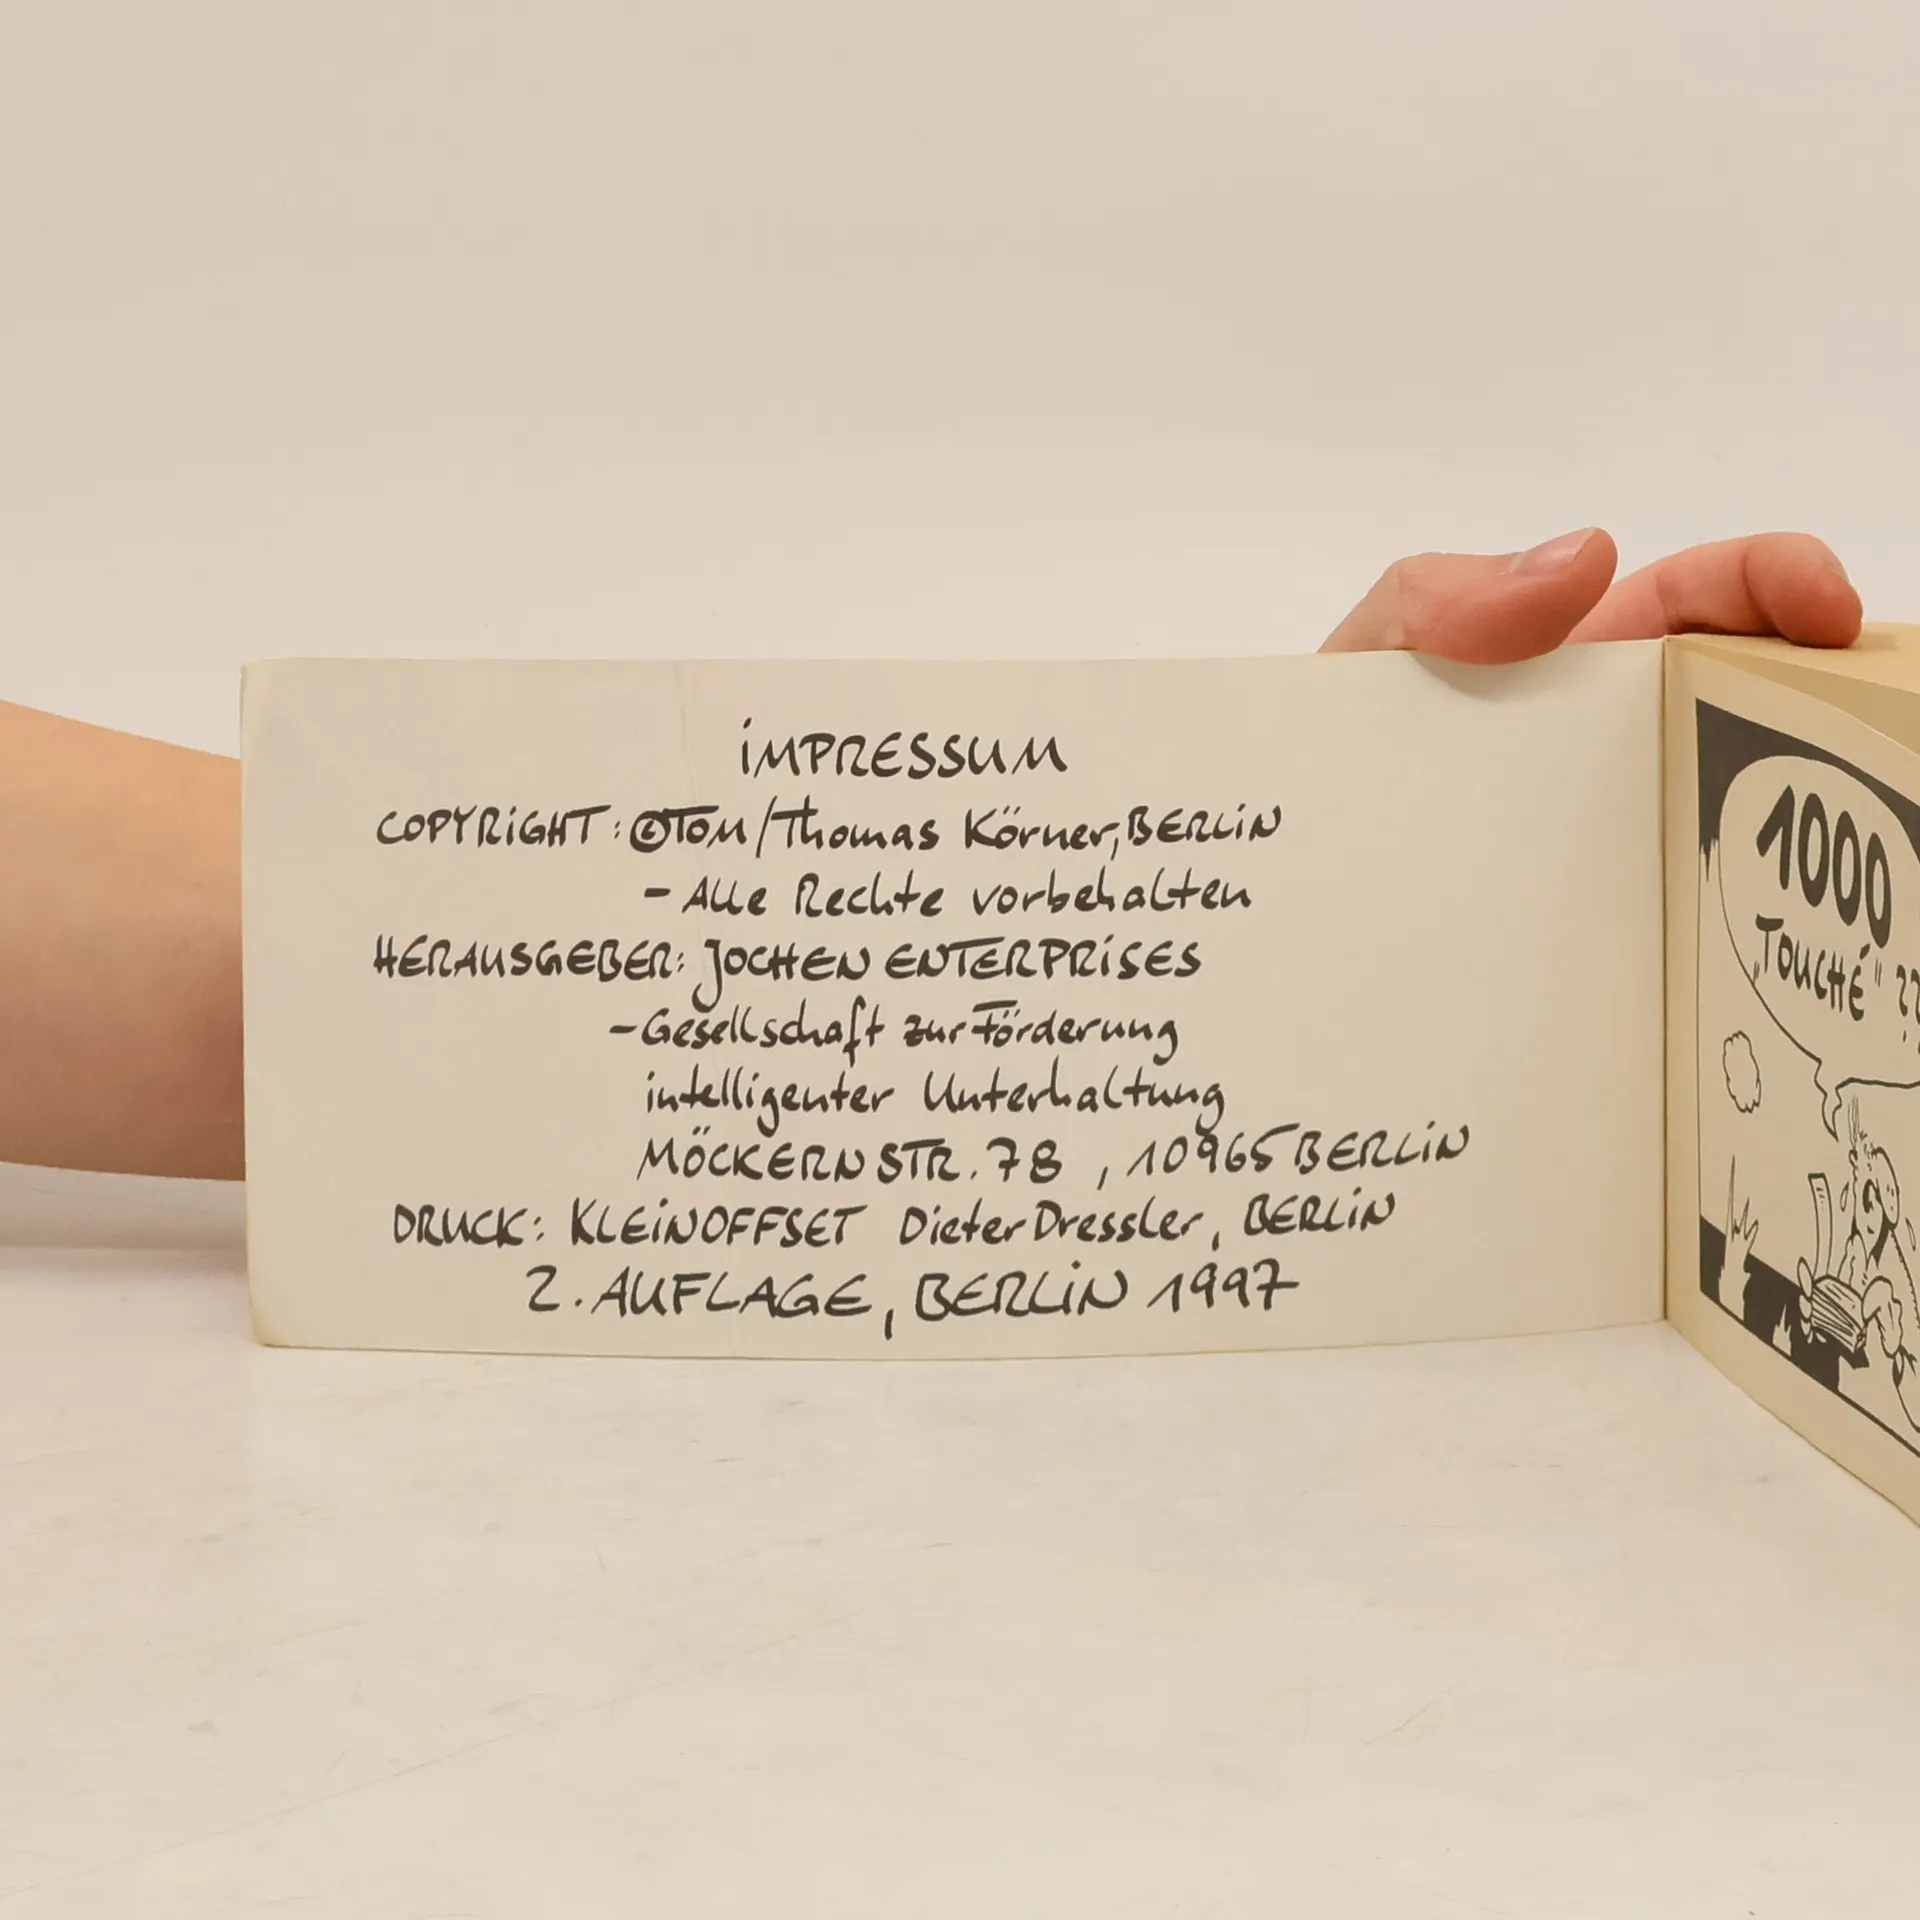 iMPRESSUM
COPYRiGHT: ©TOM/Thomas Körner, BERLiN
- Alle Rechte vorbehalten
HERAUSGEBER: JOCHEN ENTERPRiSES
- Gesellschaft zur Förderung
intelligenter Unterhaltung
MÖCKERNSTR. 78, 10965 BERLiN
DRUCK: KLEiNOFFSET Dieter Dressler, BERLiN
2. AUFLAGE, BERLiN 1997
1000
„TOUCHÉ" ??